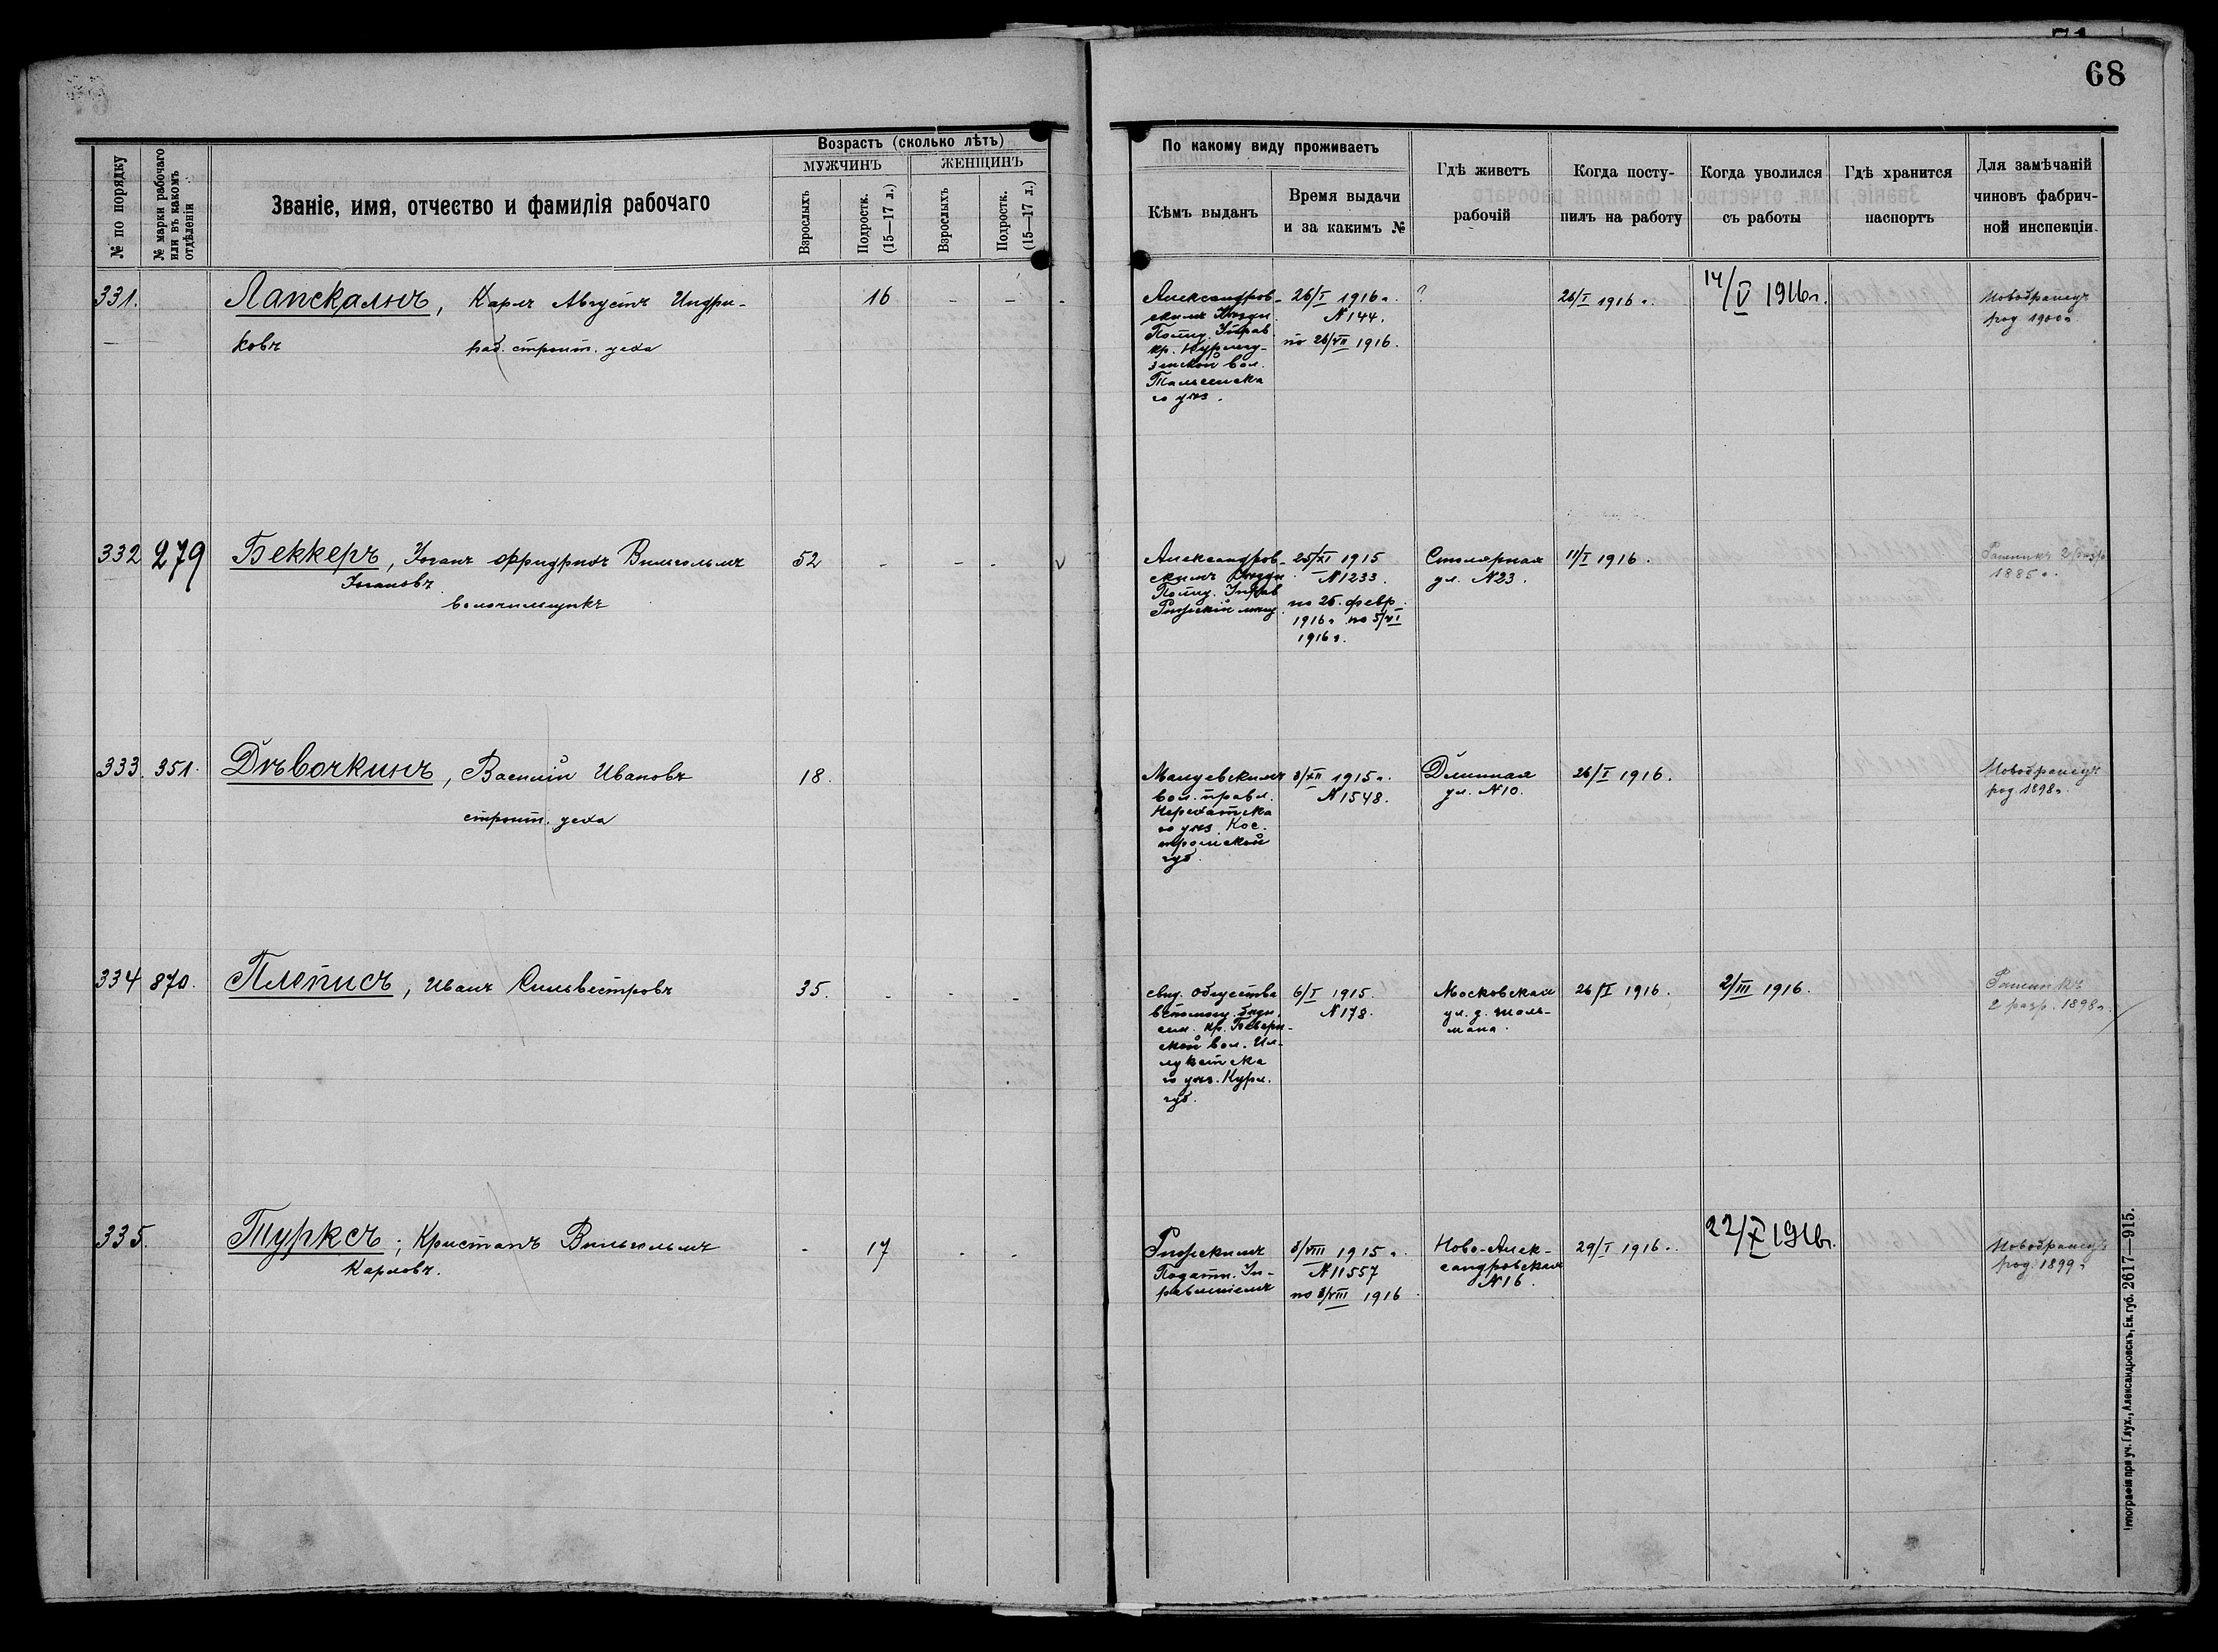 68
№ по порядку
№ марки рабочаго или въ какомъ отдѣленіи
Званіе, имя, отчество и фамилія рабочаго
Возрастъ (сколько лѣтъ)
МУЖЧИНЪ
ЖЕНЩИНЪ
Взрослыхъ
Подростк. (15—17 л.)
Взрослыхъ
Подростк. (15—17 л.)
По какому виду проживаетъ
Кѣмъ выданъ
Время выдачи
и за какимъ №
Гдѣ живетъ
рабочій
Когда посту-
пилъ на работу
Когда уволился
съ работы
Гдѣ хранится
паспортъ
Для замѣчаній
чиновъ фабрич-
ной инспекціи
331.
Лапскалнъ, Карлъ Августъ Индри-
ковъ раб. строит. цеха
16
Александров-
скимъ
Полиц. Управ
кр.
зенской вол.
Тальсенска
го уѣз.
26/I 1916г.
N 144.
по 26/VII 1916.
?
26/I 1916г.
14/V 1916г.
Новобранецъ
род 1900г.
332
279
Беккеръ, Іоганъ Фридрихъ Вильгельмъ
Іогановъ
волочильщикъ
52
Александров-
скимъ
Полиц. Управ
Рижскій мѣщ.
25/XI 1915
N 1233.
по 25. февр.
1916г. по 5/VI
1916г.
Столярная
ул. N 23.
11/I 1916.
Ратникъ
1885г.
333.
351.
Дѣвочкинъ, Василій Ивановъ
строит. цеха
18.
вол. правл.
Нерехтска
го уѣз. Кос-
тромской
губ.
3/XII 1915г.
N 1548.
Длинная
ул. N 10.
26/I 1916.
Новобранецъ
род. 1898г.
334
870.
Плеписъ, Иванъ Сильвестровъ
35.
свид. общества
вспомощ.
кр.
ской вол. Ил-
лукстска
го уѣз. Курл.
губ.
6/I 1915.
N 178.
Московская
ул. д. Шаль-
мана.
26/I 1916.
2/III 1916.
Ратникъ
2 разр. 1898г.
335.
Турксъ; Кристапъ Вильгельмъ
Карловъ.
17
Рижскимъ
Податн. Уп-
равленіемъ
3/VIII 1915г.
N 11557
по 3/VIII 1916
Ново-Алек-
сандровская
N 16.
29/I 1916г.
22/X 1916г.
Новобранецъ
род. 1899г.
Типографія при уч. Глух., Александровскъ, Ек. губ. 2617—915.